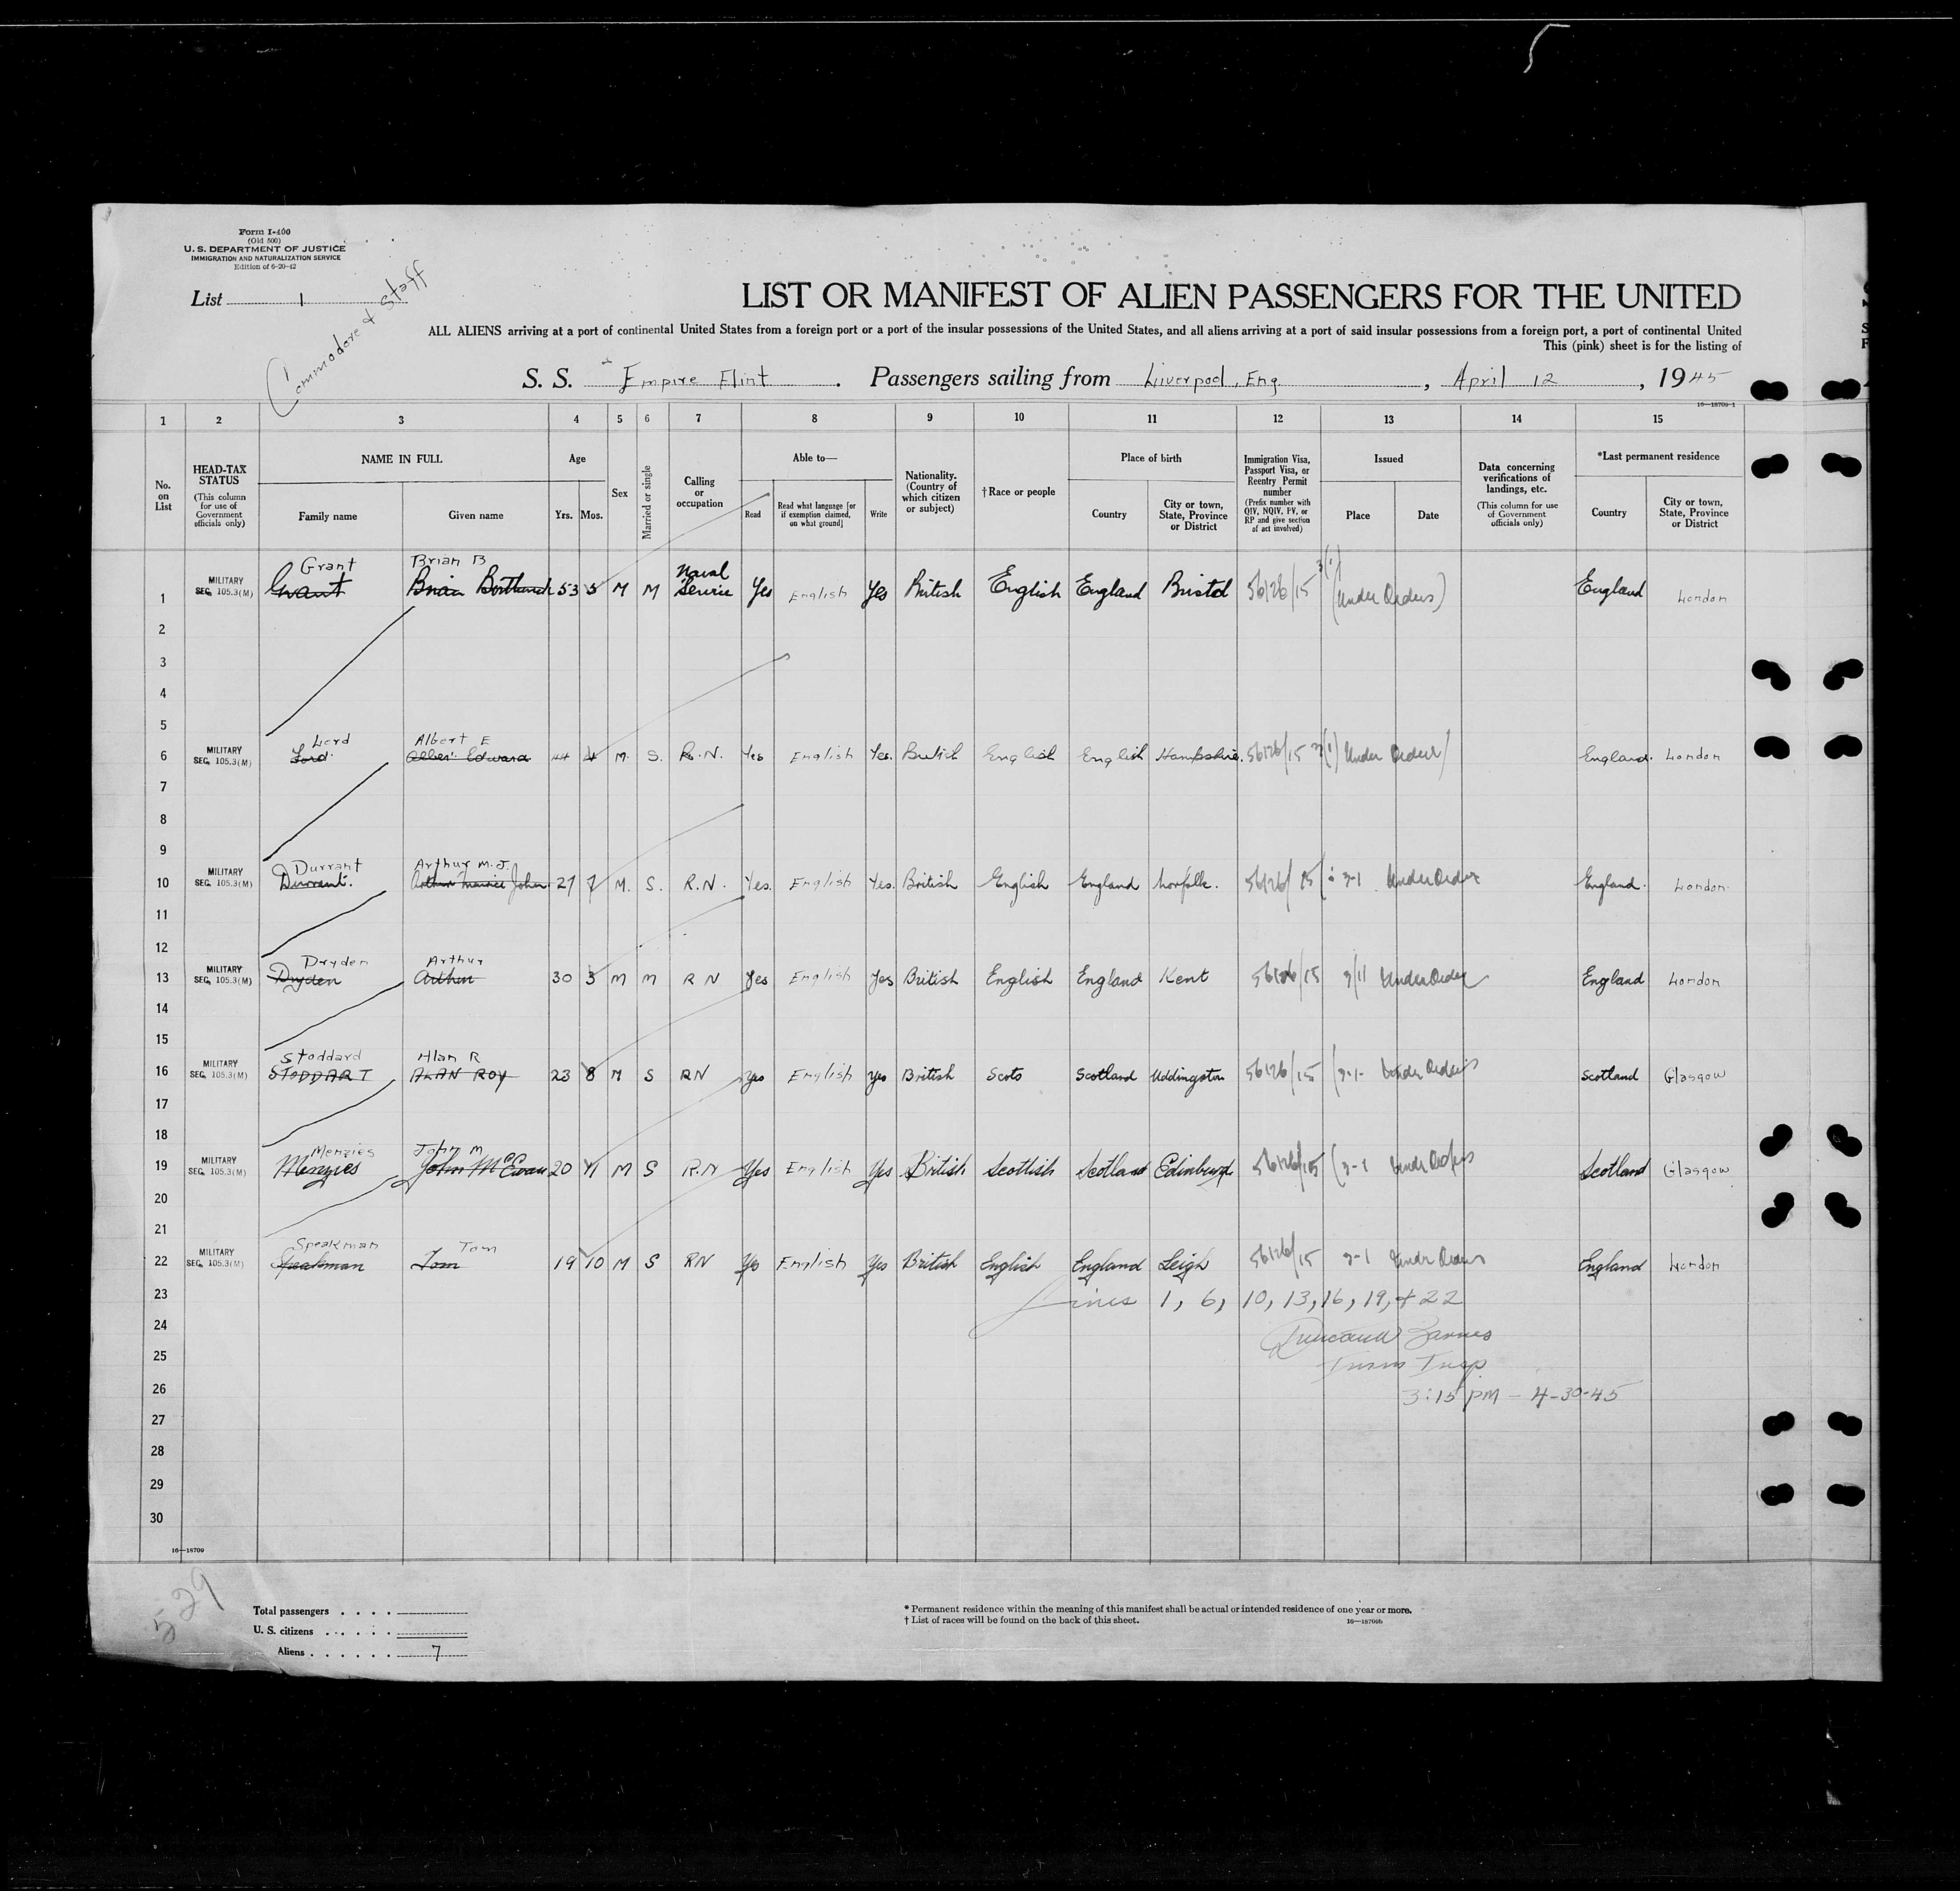 Form I-400
(Old 500)
U. S. DEPARTMENT OF JUSTICE
IMMIGRATION AND NATURALIZATION SERVICE
Edition of 6-20-42
List 1
Commodore & Staff
LIST OR MANIFEST OF ALIEN PASSENGERS FOR THE UNITED
ALL ALIENS arriving at a port of continental United States from a foreign port or a port of the insular possessions of the United States, and all aliens arriving at a port of said insular possessions from a foreign port, a port of continental United
This (pink) sheet is for the listing of
S. S. Empire Flint . Passengers sailing from Liverpool, Eng , April 12 , 1945
16—18709-1
1 2 3 4 5 6 7 8 9 10 11 12 13 14 15
No. on List
HEAD-TAX STATUS
(This column for use of Government officials only)
NAME IN FULL
Family name
Given name
Age
Yrs. Mos.
Sex
Married or single
Calling or occupation
Able to—
Read
Read what language [or if exemption claimed, on what ground]
Write
Nationality. (Country of which citizen or subject)
†Race or people
Place of birth
Country
City or town, State, Province or District
Immigration Visa, Passport Visa, or Reentry Permit number
(Prefix number with QIV, NQIV, PV, or RP and give section of act involved)
Issued
Place
Date
Data concerning verifications of landings, etc.
(This column for use of Government officials only)
*Last permanent residence
Country
City or town, State, Province or District
Grant Brian B
1 MILITARY SEC. 105.3(M) Grant Brian 53 5 M M Naval Service Yes English Yes British English England Bristol 56126/15 3(1) (Under Orders) England London
2
3
4
5
Lord Albert E
6 MILITARY SEC. 105.3(M) Lord. Albert Edward 44 4 M. S. R.N. Yes English Yes. British English English Hampshire. 56126/15 3(1) Under Orders) England. London
7
8
9
Durrant Arthur M.J.
10 MILITARY SEC. 105.3(M) Durrant. Arthur Maurice John 27 7 M. S. R.N. Yes. English Yes. British English England Norfolk. 56126/15 3-1 Under Order England. London.
11
12
Dryden Arthur
13 MILITARY SEC. 105.3(M) Dryden Arthur 30 3 M M R N Yes English Yes British English England Kent 56126/15 Under Order England London
14
15
Stoddard Alan R
16 MILITARY SEC. 105.3(M) STODDART ALAN ROY 23 8 M S RN Yes English Yes British Scots Scotland Uddingston 56126/15 (3-1- Under Orders Scotland Glasgow
17
18
Menzies John M
19 MILITARY SEC. 105.3(M) Menzies John McEwan 20 11 M S R.N Yes English Yes British Scottish Scotland Edinburgh 56126/15 (3-1 Under Orders Scotland Glasgow
20
21
Speakman Tom
22 MILITARY SEC. 105.3(M) Speakman Tom 19 10 M S RN Yes English Yes British English England Leigh 56126/15 3-1 Under Orders England London
23 Lines 1, 6, 10, 13, 16, 19, & 22
24
25 Insp
26 3:15 PM – 4-30-45
27
28
29
30
16—18709
529
Total passengers . . . .
U. S. citizens . . . . .
Aliens . . . . . . 7
* Permanent residence within the meaning of this manifest shall be actual or intended residence of one year or more.
† List of races will be found on the back of this sheet.
16—18709b